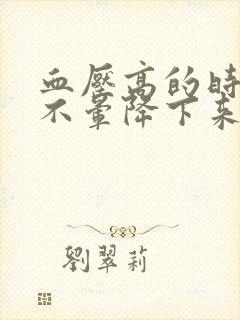 血壓高的時
不暈降下来
劉翠莉